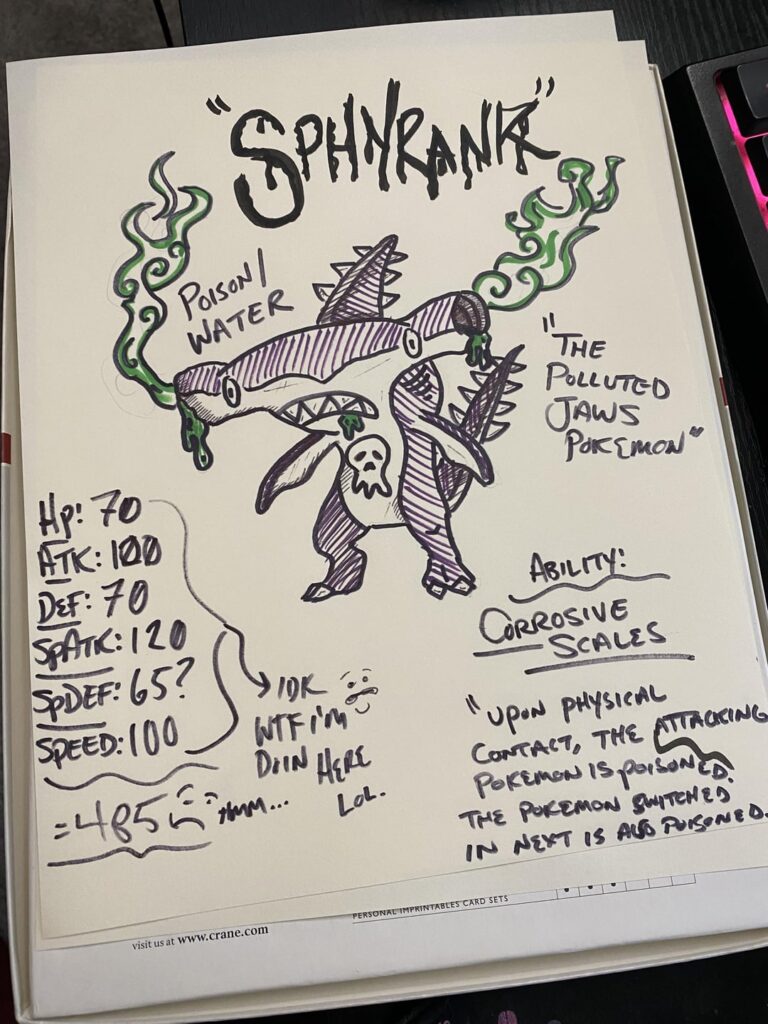 "SPHYRANK"
POISON/
WATER
"THE
POLLUTED
JAWS
POKEMON"
HP: 70
ATK: 100
DEF: 70
SPATK: 120
SPDEF: 65?
SPEED: 100
IDK
WTF I'M
DOIN HERE
LOL.
=485 HMM...
ABILITY:
CORROSIVE
SCALES
"UPON PHYSICAL
CONTACT, THE ATTACKING
POKEMON IS POISONED.
THE POKEMON SWITCHED
IN NEXT IS ALSO POISONED.
PERSONAL IMPRINTABLES CARD SETS
visit us at www.crane.com